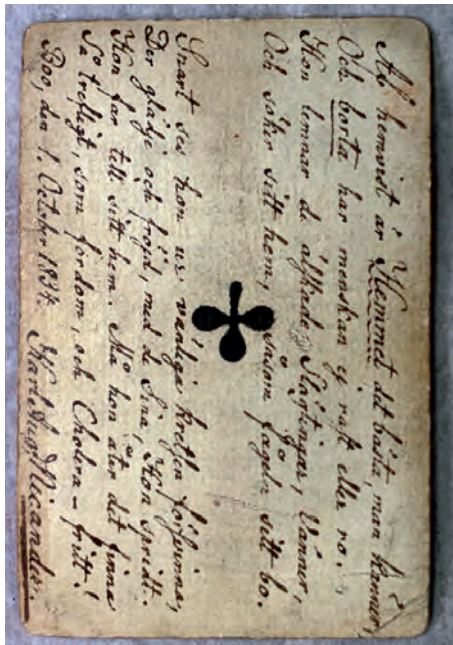 hemvist är Hemmet det bästa, man känner,
Och borta har menskan ej rast eller ro.
Hon lemnar de älskade Slägtingar, Vänner,
Och söker sitt hem, såsom fogeln sitt bo.
Snart ses hon ur vänliga kretsen försvinna,
Der glädje och fröjd, med de Sina, Hon spridt.
Hon far till sitt hem. Må hon åter det finna
Så trefligt, som fordom, och Cholera-fritt!
Boo, den 1. October 1834. Karl Aug. Nicander.